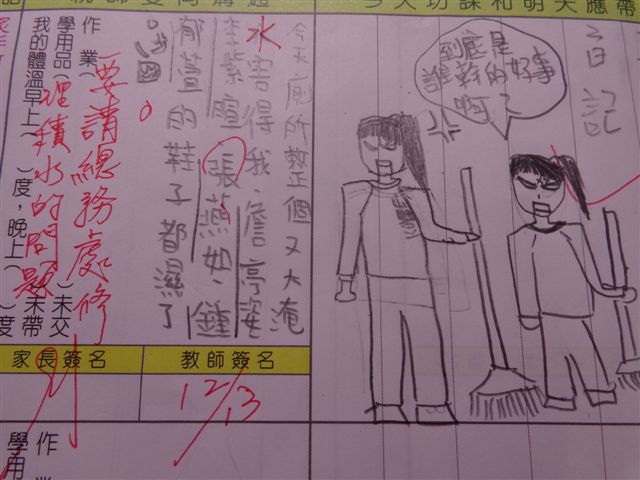 今天功課和明天應帶
日記
到底是
誰幹的好事
啊?
今天廁所整個又大淹
水害得我、詹亭姿
李紫瑄、張燕如、鍾
郁萱的鞋子都濕了
要請總務處修
理積水的問題
作 業( )未交
學用品( )未帶
我的體溫早上( )度，晚上( )度
教師簽名
家長簽名
12/13
作
學用